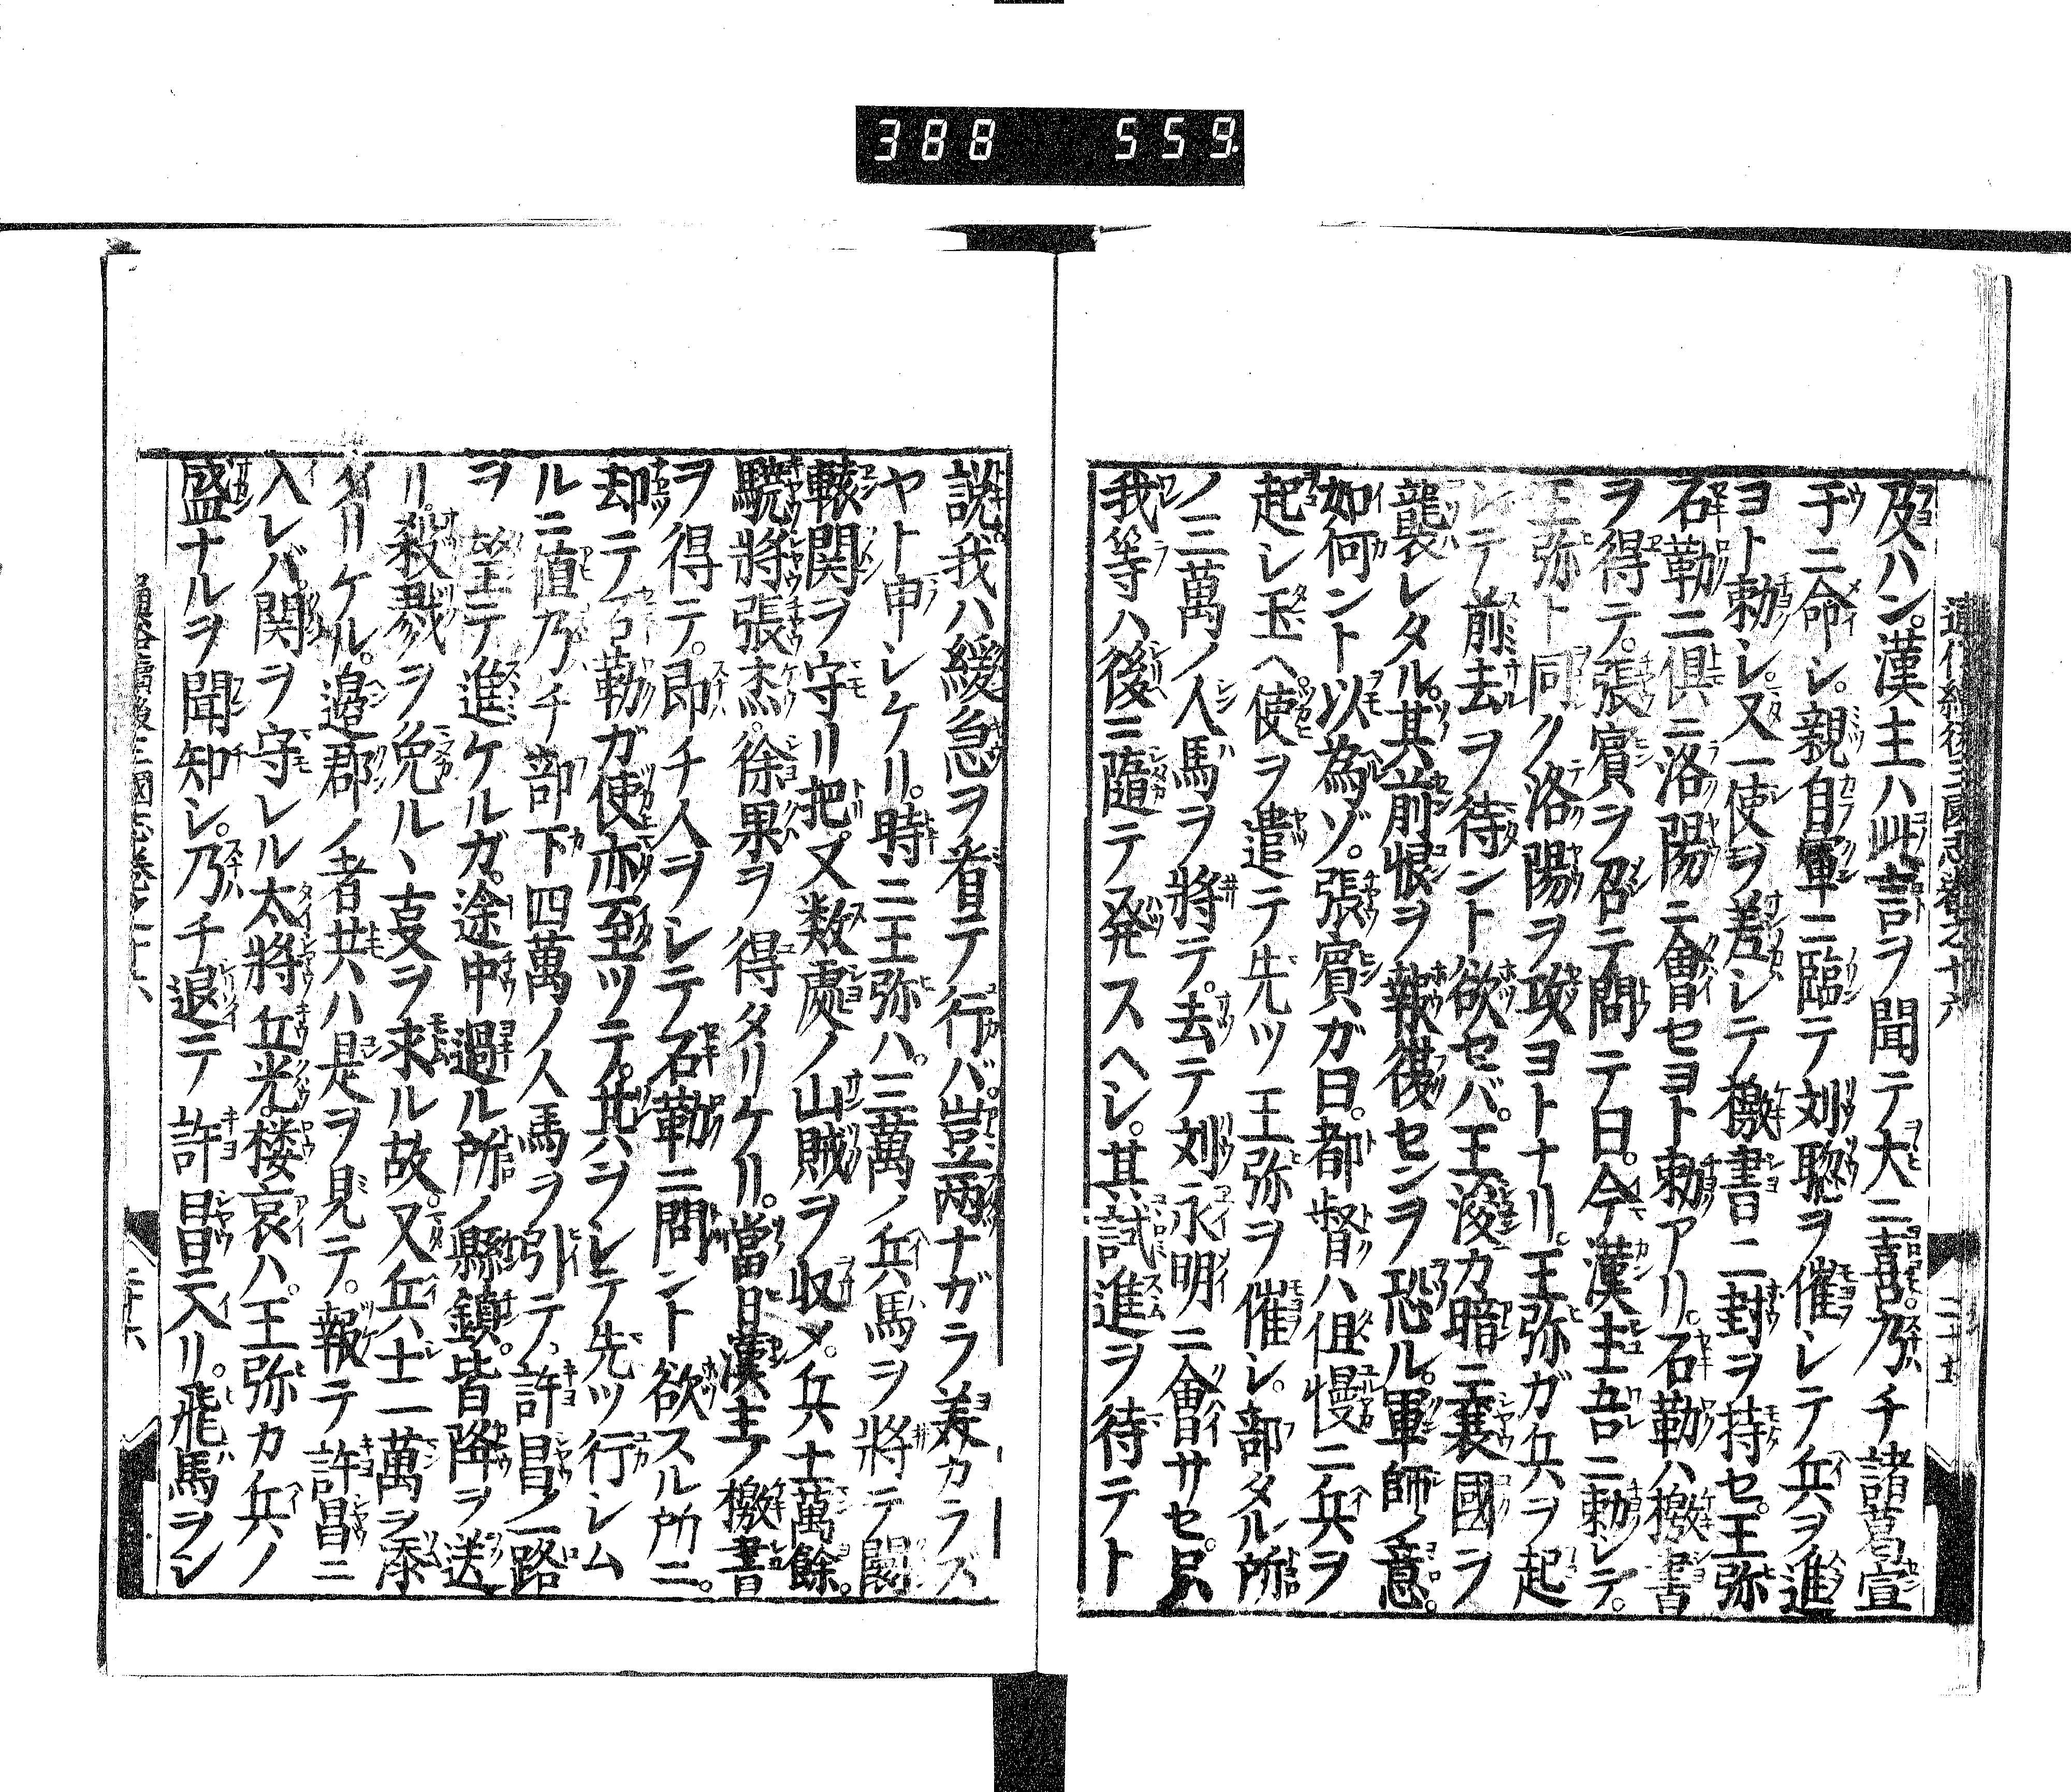 388 559.
通俗續後三國志卷之十六
及ハン。漢主ハ此言ヲ聞テ大ニ喜。乃チ諸葛宣
于ニ命シ。親自軍ニ臨テ刘聡ヲ催シテ兵ヲ進
ヨト勅シ。又一使ヲ差シテ檄書ニ封ヲ持セ。王弥
石勒ニ俱ニ洛陽ニ會セヨト勅アリ。石勒ハ檄書
ヲ得テ。張賓ヲ召テ問テ曰。今漢主吾ニ勅シテ。
王弥ト同ク洛陽ヲ攻ヨトナリ。王弥ガ兵ヲ起
シテ前去ヲ待ント欲セバ。王浚カ暗ニ襄國ヲ
襲レタル。其前恨ヲ報復センヲ恐ル。軍師ノ意。
如何ント以為ゾ。張賓ガ曰。都督ハ但慢ニ兵ヲ
起シ玉ヘ。使ヲ遣テ先ツ王弥ヲ催シ。部タル所
ノ三萬ノ人馬ヲ將テ。去テ刘永明ニ會サセ。只
我等ハ後ニ隨テ発スヘシ。其試進ヲ待テト
說。我ハ緩急ヲ看テ行バ。豈两ナガラ美カラズ
ヤト申シケリ。時ニ王弥ハ。三萬ノ兵馬ヲ將テ闕
轅関ヲ守リ把。又数處ノ山賊ヲ収メ。兵士萬餘。
驍將張杰。徐果ヲ得タリケリ。當日漢主ノ檄書
ヲ得テ。即チ人ヲシテ石勒ニ問ント欲スル所ニ。
却テ石勒ガ使亦至ツテ。其ヲシテ先ツ行シム
ルニ値。乃チ部下四萬ノ人馬ヲ引テ、許昌ノ一路
ヲ望テ進ケルガ。途中過ル所ノ縣鎮。皆降ヲ送
リ。殺戮ヲ免ル、支ヲ求ル故。又兵士一萬ヲ添
タリケル。邉郡ノ者共ハ是ヲ見テ。報テ許昌ニ
入レバ。関ヲ守レル太將丘光。楼裒ハ。王弥カ兵ノ
盛ナルヲ聞知シ。乃チ退テ許昌ニ入リ。飛馬ヲシ
通俗續後三國志卷之十六
二十六